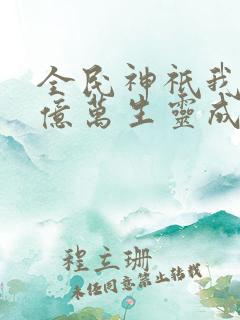 全民神祇我
億萬生靈成
程立珊
未经同意禁止转载